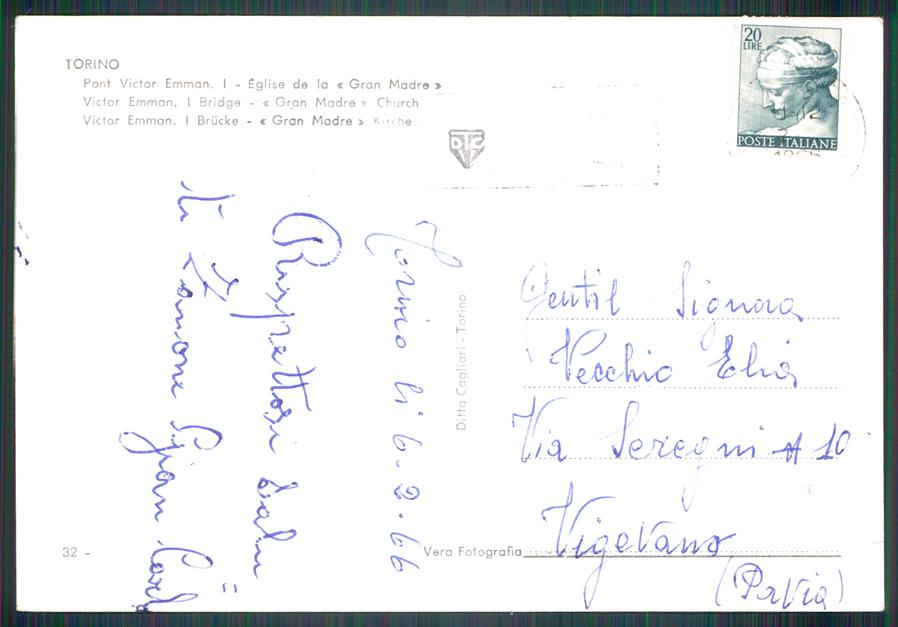 TORINO
Pont Victor Emman. I - Église de la « Gran Madre »
Victor Emman. I Bridge - « Gran Madre » Church
Victor Emman. I Brücke - « Gran Madre » Kirche
20
LIRE
POSTE ITALIANE
DTC
Torino li 6-2-66
Rispettosi Salu=
ti Zanone Gian Carlo
Ditta Cagliari - Torino
Gentil Signora
Vecchio Elia
Via Seregni # 10
Vigevano
(Pavia)
32 -
Vera Fotografia